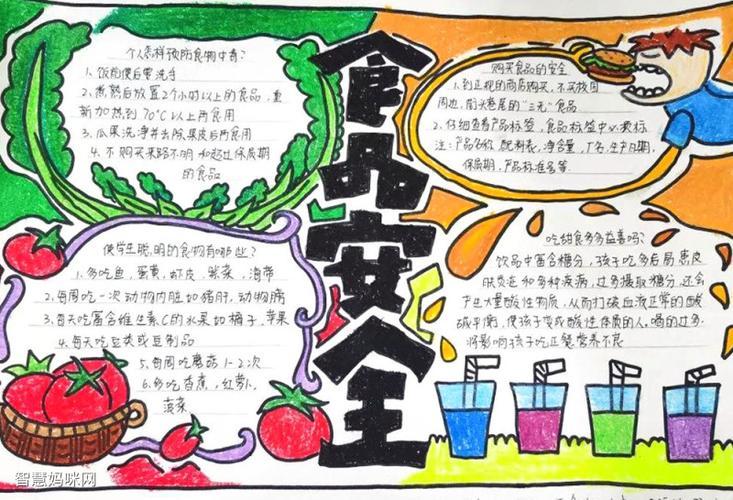 食品安全
个人怎样预防食物中毒?
1、饭前便后要洗手
2、煮熟后放置2个小时以上的食品,重
新加热到70℃以上再食用
3、瓜果洗净并去除果皮后再食用
4、不购买来路不明和超过保质期
的食品
购买食品的安全
1、到正规的商店购买,不买校园
周边、街头巷尾的“三无”食品
2、仔细查看产品标签,食品标签中必须标
注:产品名称、配料表、净含量、厂名、生产日期、
保质期,产品标准号等.
使学生聪明的食物有哪些?
1、多吃鱼,蛋黄,虾皮,紫菜,海带
2、每周吃一次动物内脏如猪肝,动物脑
3、每天吃富含维生素C的水果如橘子,苹果
4、每天吃豆类或豆制品
5、每周吃蘑菇1-2次
6、多吃香蕉,红萝卜,
菠菜
吃甜食多多益善吗?
饮品中富含糖分,孩子吃多后易患皮
肤炎症和多种疾病,过多摄取糖分,还会
产生大量酸性物质,从而打破血液正常的酸
碱平衡,使孩子变成酸性体质的人。喝的过多
将影响孩子吃正餐营养不良
智慧妈咪网